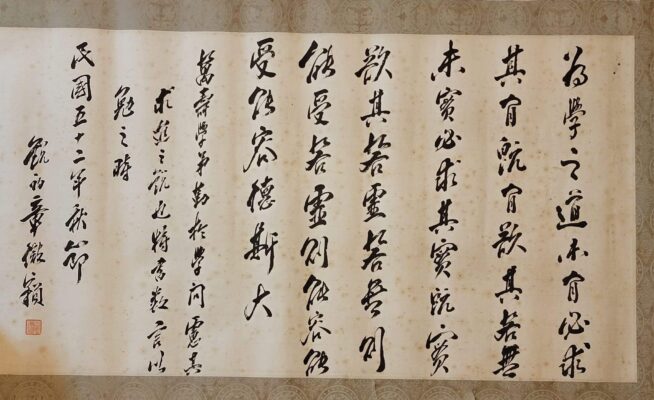 為學之道未有必求
其有既有欲其若無
未實必求其實既實
欲其若虛若無則
能受若虛則能容能
受能容德斯大
萬壽學弟勤於學問慮其
求進之銳也特書數言以
勉之時
民國五十二年秋節
銳初章微穎